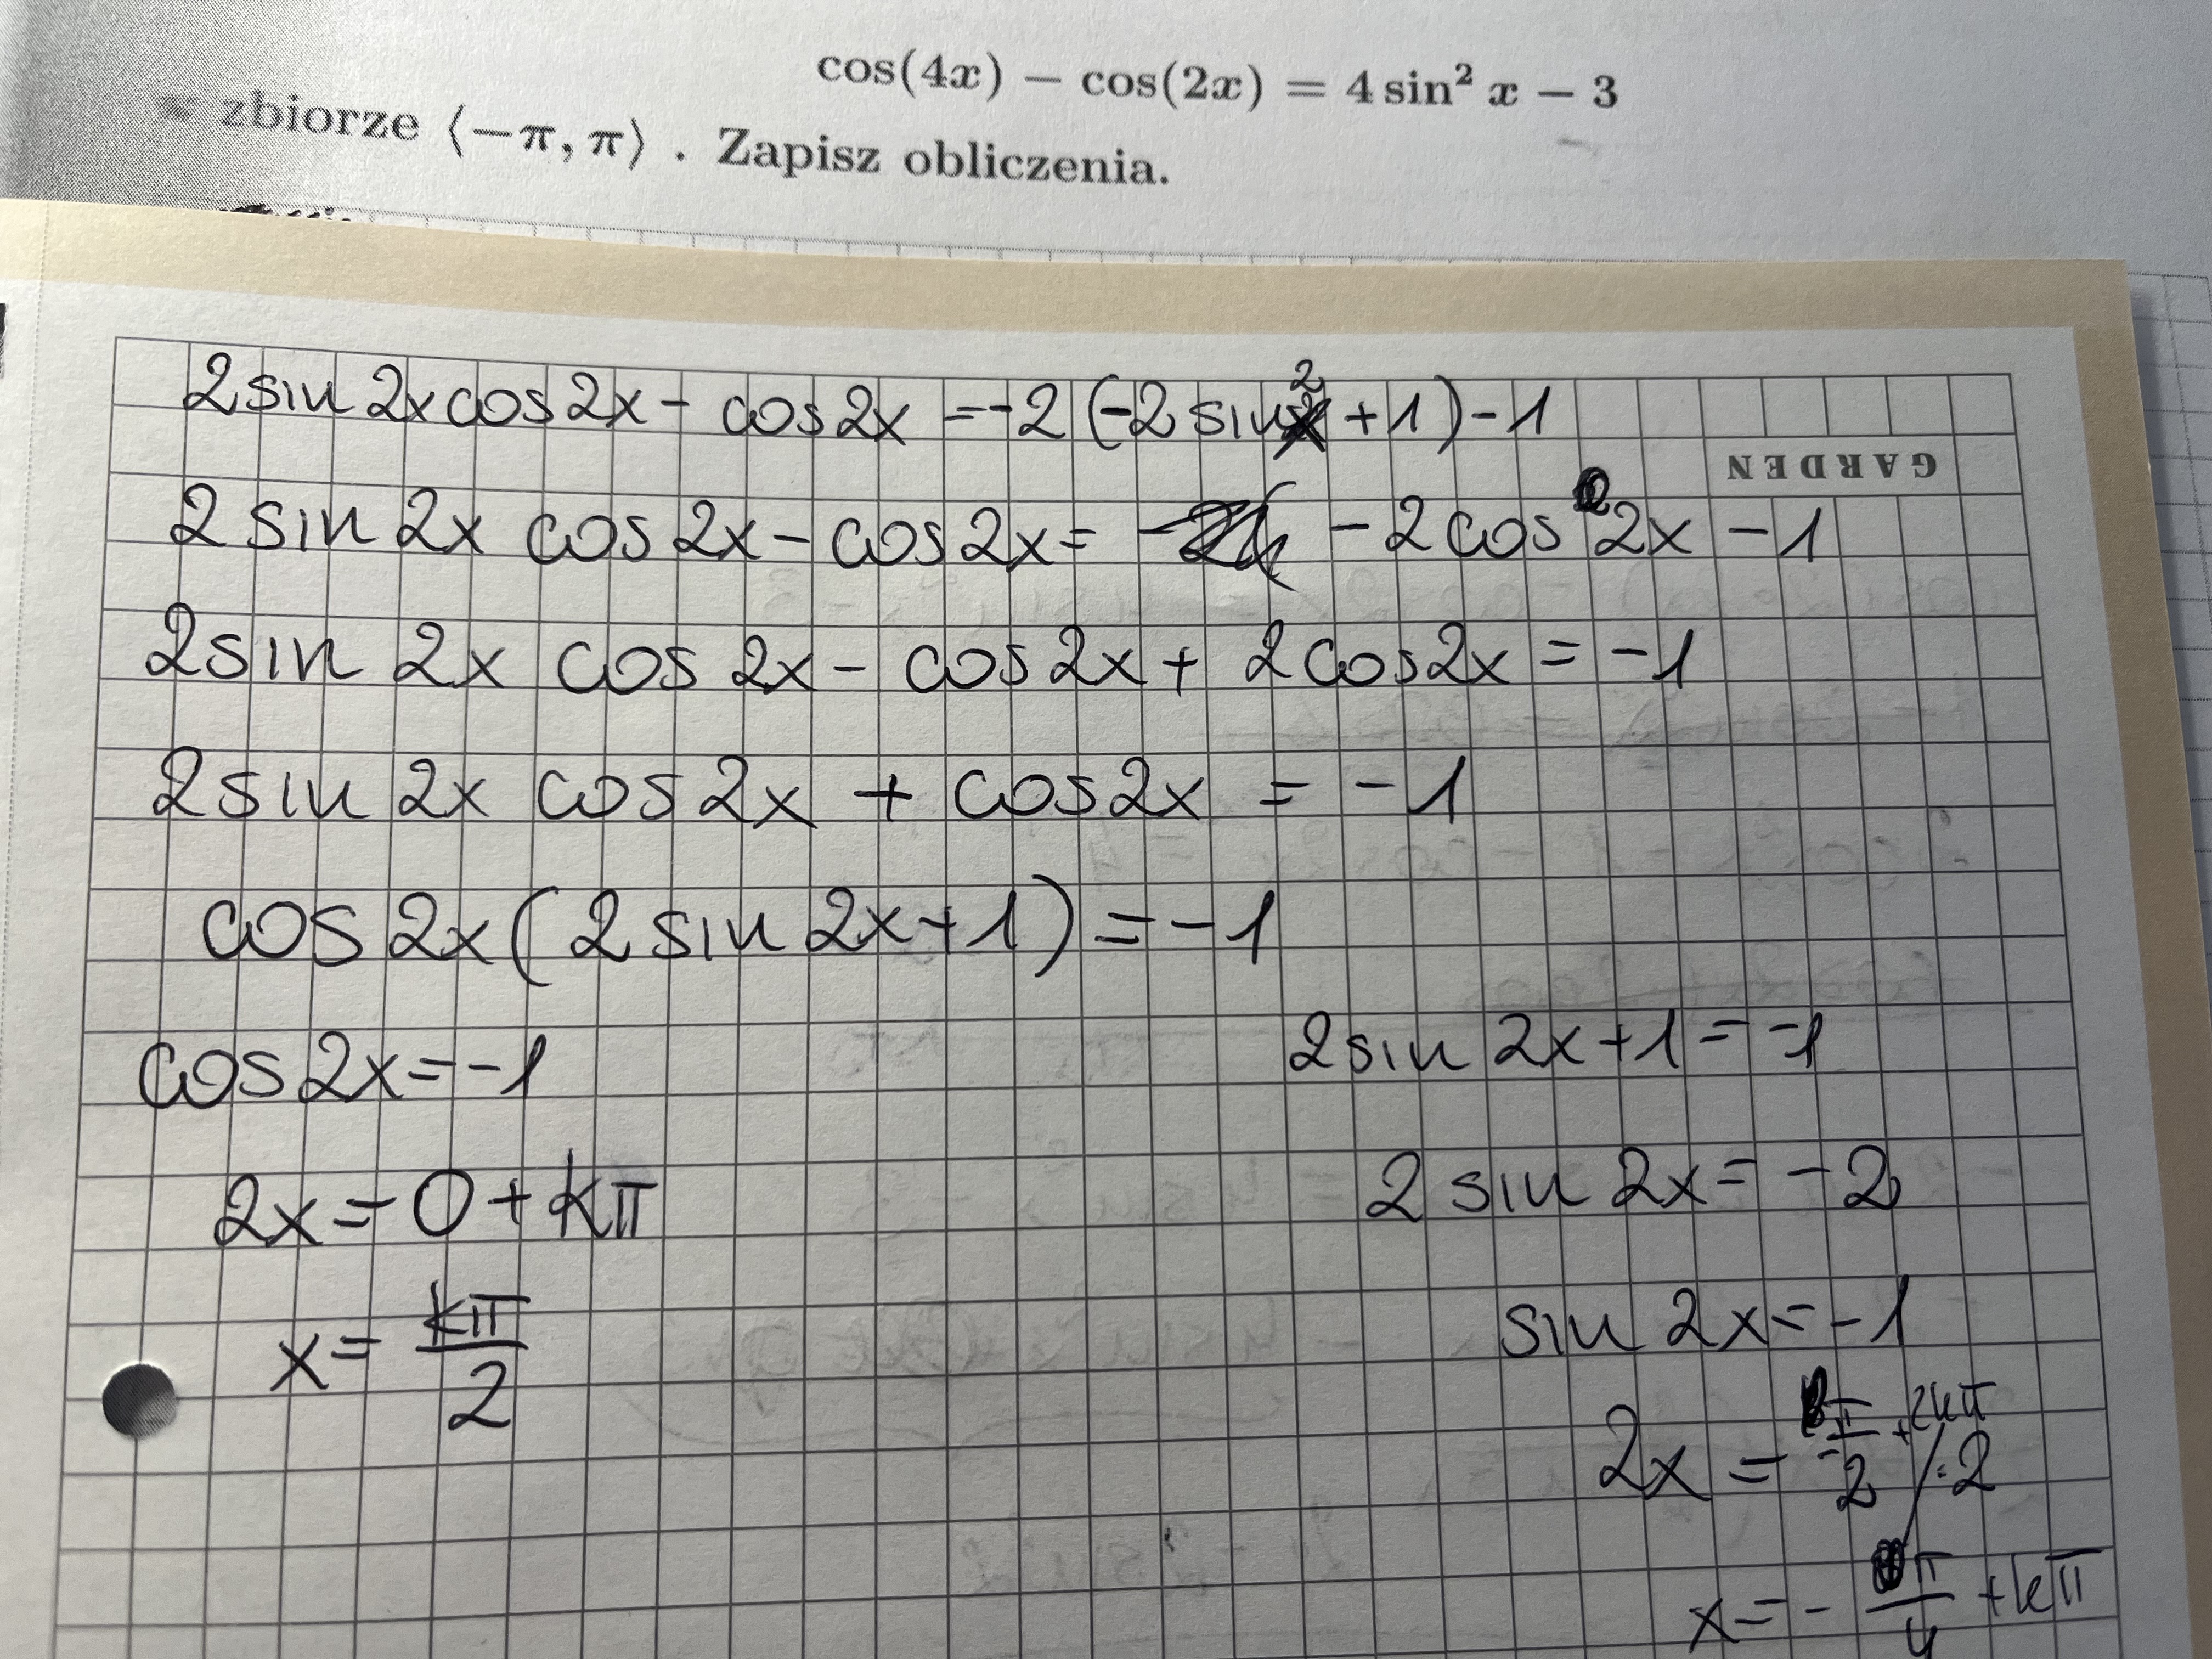 cos(4x) − cos(2x) = 4 sin² x − 3
w zbiorze ⟨−π, π⟩ . Zapisz obliczenia.
2sin 2x cos 2x - cos 2x = -2 (-2 sin² x + 1) - 1
GARDEN
2 sin 2x cos 2x - cos 2x = - 2 cos 2x - 1
2 sin 2x cos 2x - cos 2x + 2 cos 2x = -1
2 sin 2x cos 2x + cos 2x = -1
cos 2x (2 sin 2x + 1) = -1
cos 2x = -1
2 sin 2x + 1 = -1
2x = 0 + kπ
2 sin 2x = -2
x = kπ/2
sin 2x = -1
2x = -π/2 + 2kπ /:2
x = - π/4 + kπ